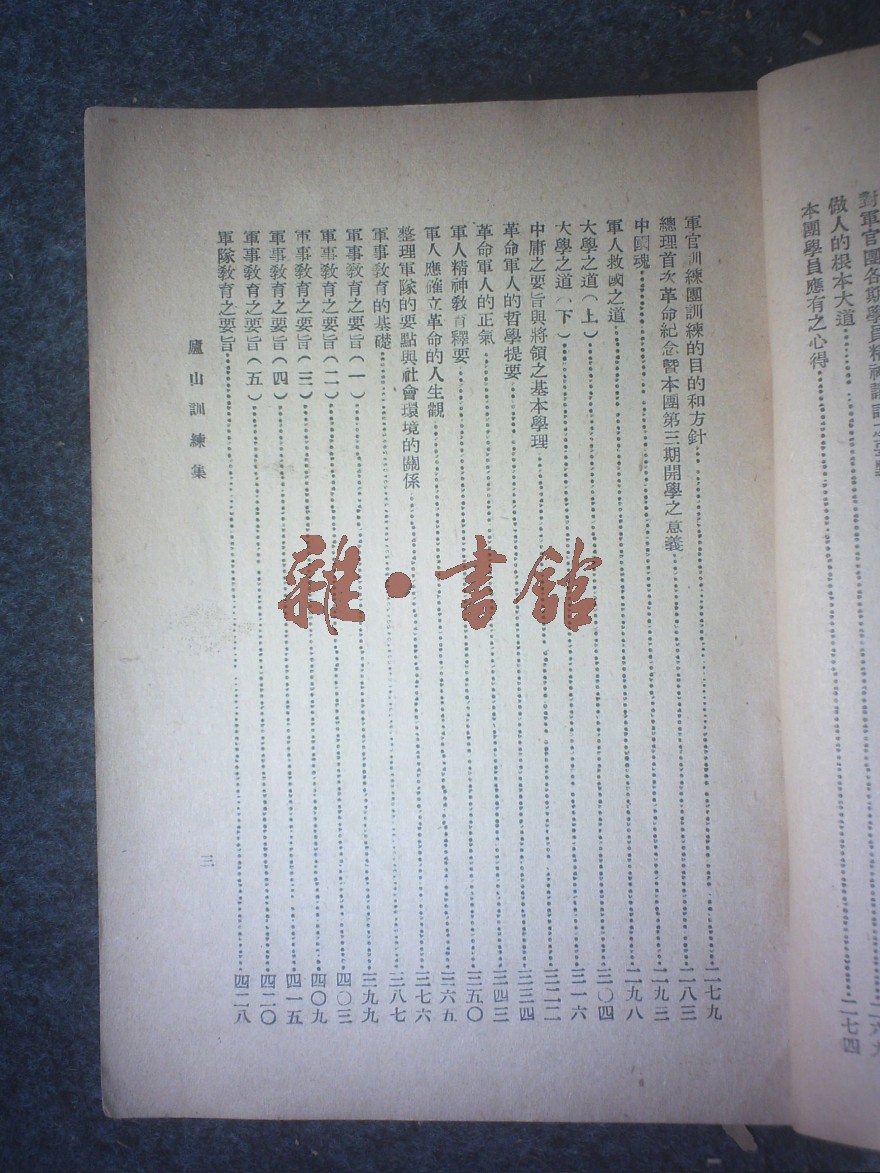 對軍官團各期學員精神講話
做人的根本大道……二六九
本團學員應有之心得……二七四
軍官訓練團訓練的目的和方針……二七九
總理首次革命紀念暨本團第三期開學之意義……二八三
中國魂……二九三
軍人救國之道……二九八
大學之道(上)……三〇四
大學之道(下)……三一六
中庸之要旨與將領之基本學理……三二二
革命軍人的哲學提要……三三四
革命軍人的正氣……三四三
軍人精神教育釋要……三五〇
軍人應確立革命的人生觀……三六五
整理軍隊的要點與社會環境的關係……三七六
軍事教育的基礎……三八七
軍事教育之要旨(一)……三九九
軍事教育之要旨(二)……四〇三
軍事教育之要旨(三)……四〇九
軍事教育之要旨(四)……四一五
軍事教育之要旨(五)……四二〇
軍隊教育之要旨……四二八
廬山訓練集
三
雜·書館